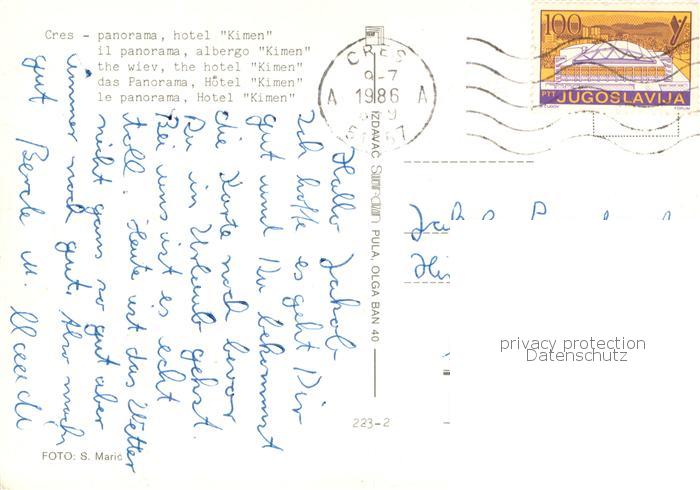 Cres - panorama, hotel "Kimen"
il panorama, albergo "Kimen"
the wiev, the hotel "Kimen"
das Panorama, Hotel "Kimen"
le panorama, Hotel "Kimen"
CRES
9-7
A 1986 A
100
PTT JUGOSLAVIJA
Hallo Jakob
Ich hoffe es geht Dir
gut und Du bekommst
die Karte noch bevor
Du in Urlaub gehst.
Bei uns ist es echt
toll. Heute ist das Wetter
nicht ganz so gut aber
immer noch gut. Also machs
gut
IZDAVAČ PULA, OLGA BAN 40
223-2
FOTO: S. Marić
privacy protection
Datenschutz